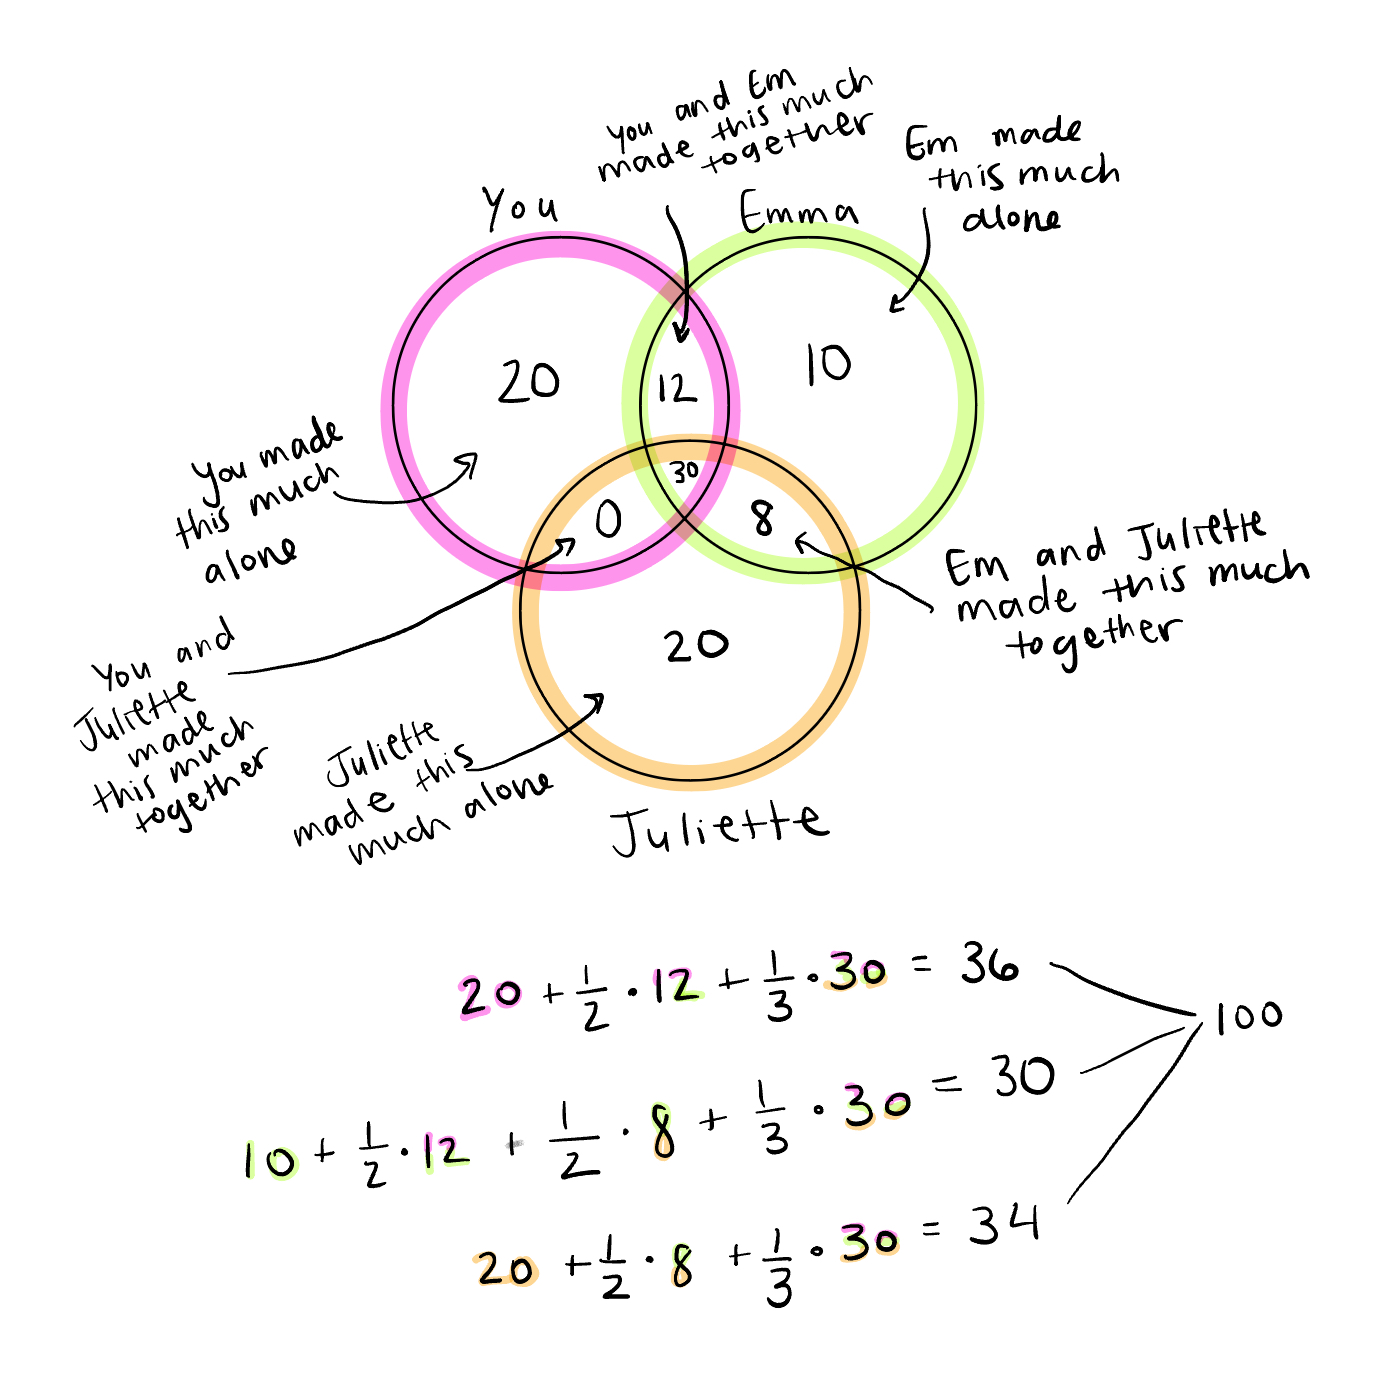 You and Em
made this much
together
Em made
this much
alone
You
Emma
20
12
10
30
0
8
20
You made
this much
alone
You and
Juliette
made
this much
together
Juliette
made this
much alone
Em and Juliette
made this much
together
Juliette
20 + 1/2 · 12 + 1/3 · 30 = 36
100
10 + 1/2 · 12 + 1/2 · 8 + 1/3 · 30 = 30
20 + 1/2 · 8 + 1/3 · 30 = 34